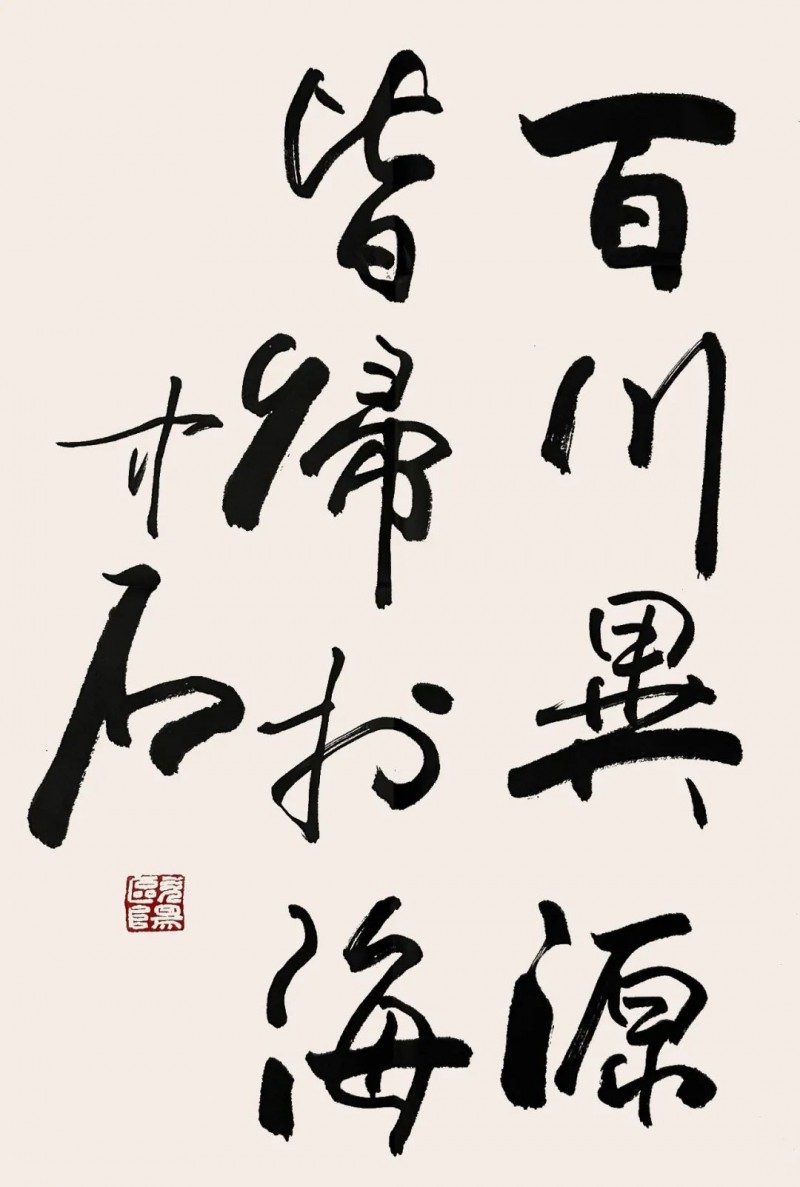 百川異源
皆歸於海
石